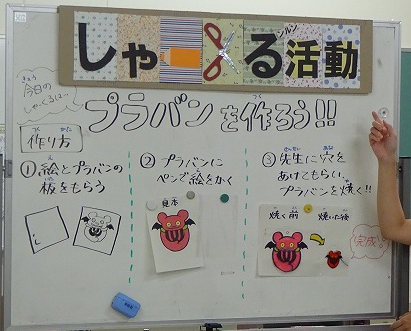 しゃくる活動
きょう
今日の
しゃくるは…
プラバンを作ろう!!
つく
作り方
つく かた
①絵とプラバンの
板をもらう
②プラバンに
ペンで絵をかく
見本
③先生に穴を
あけてもらい
プラバンを焼く!!
焼く前
焼いた後
完成